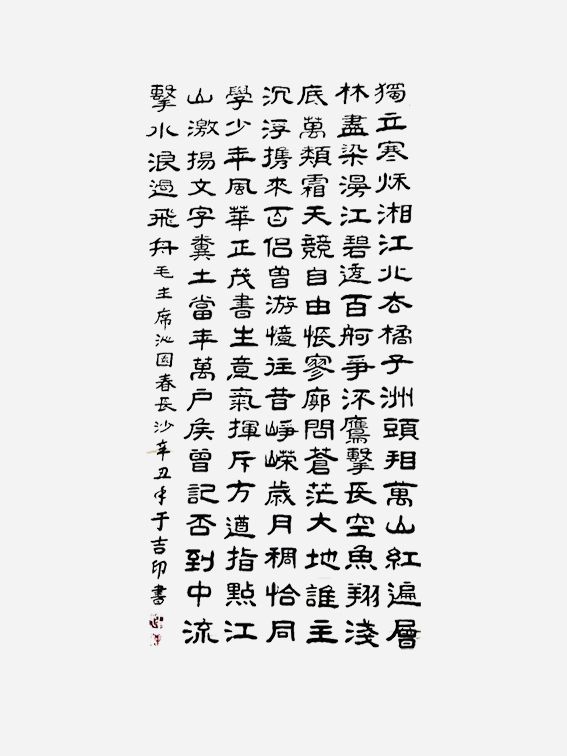 獨立寒秌湘江北去橘子洲頭看萬山紅遍層
林盡染漫江碧透百舸爭流鷹擊長空魚翔淺
底萬類霜天競自由悵寥廓問蒼茫大地誰主
沉浮携來百侶曾游憶往昔崢嶸歲月稠恰同
學少年風華正茂書生意氣揮斥方遒指點江
山激揚文字糞土當年萬戶侯曾記否到中流
擊水浪遏飛舟毛主席沁园春長沙辛丑年于吉印書